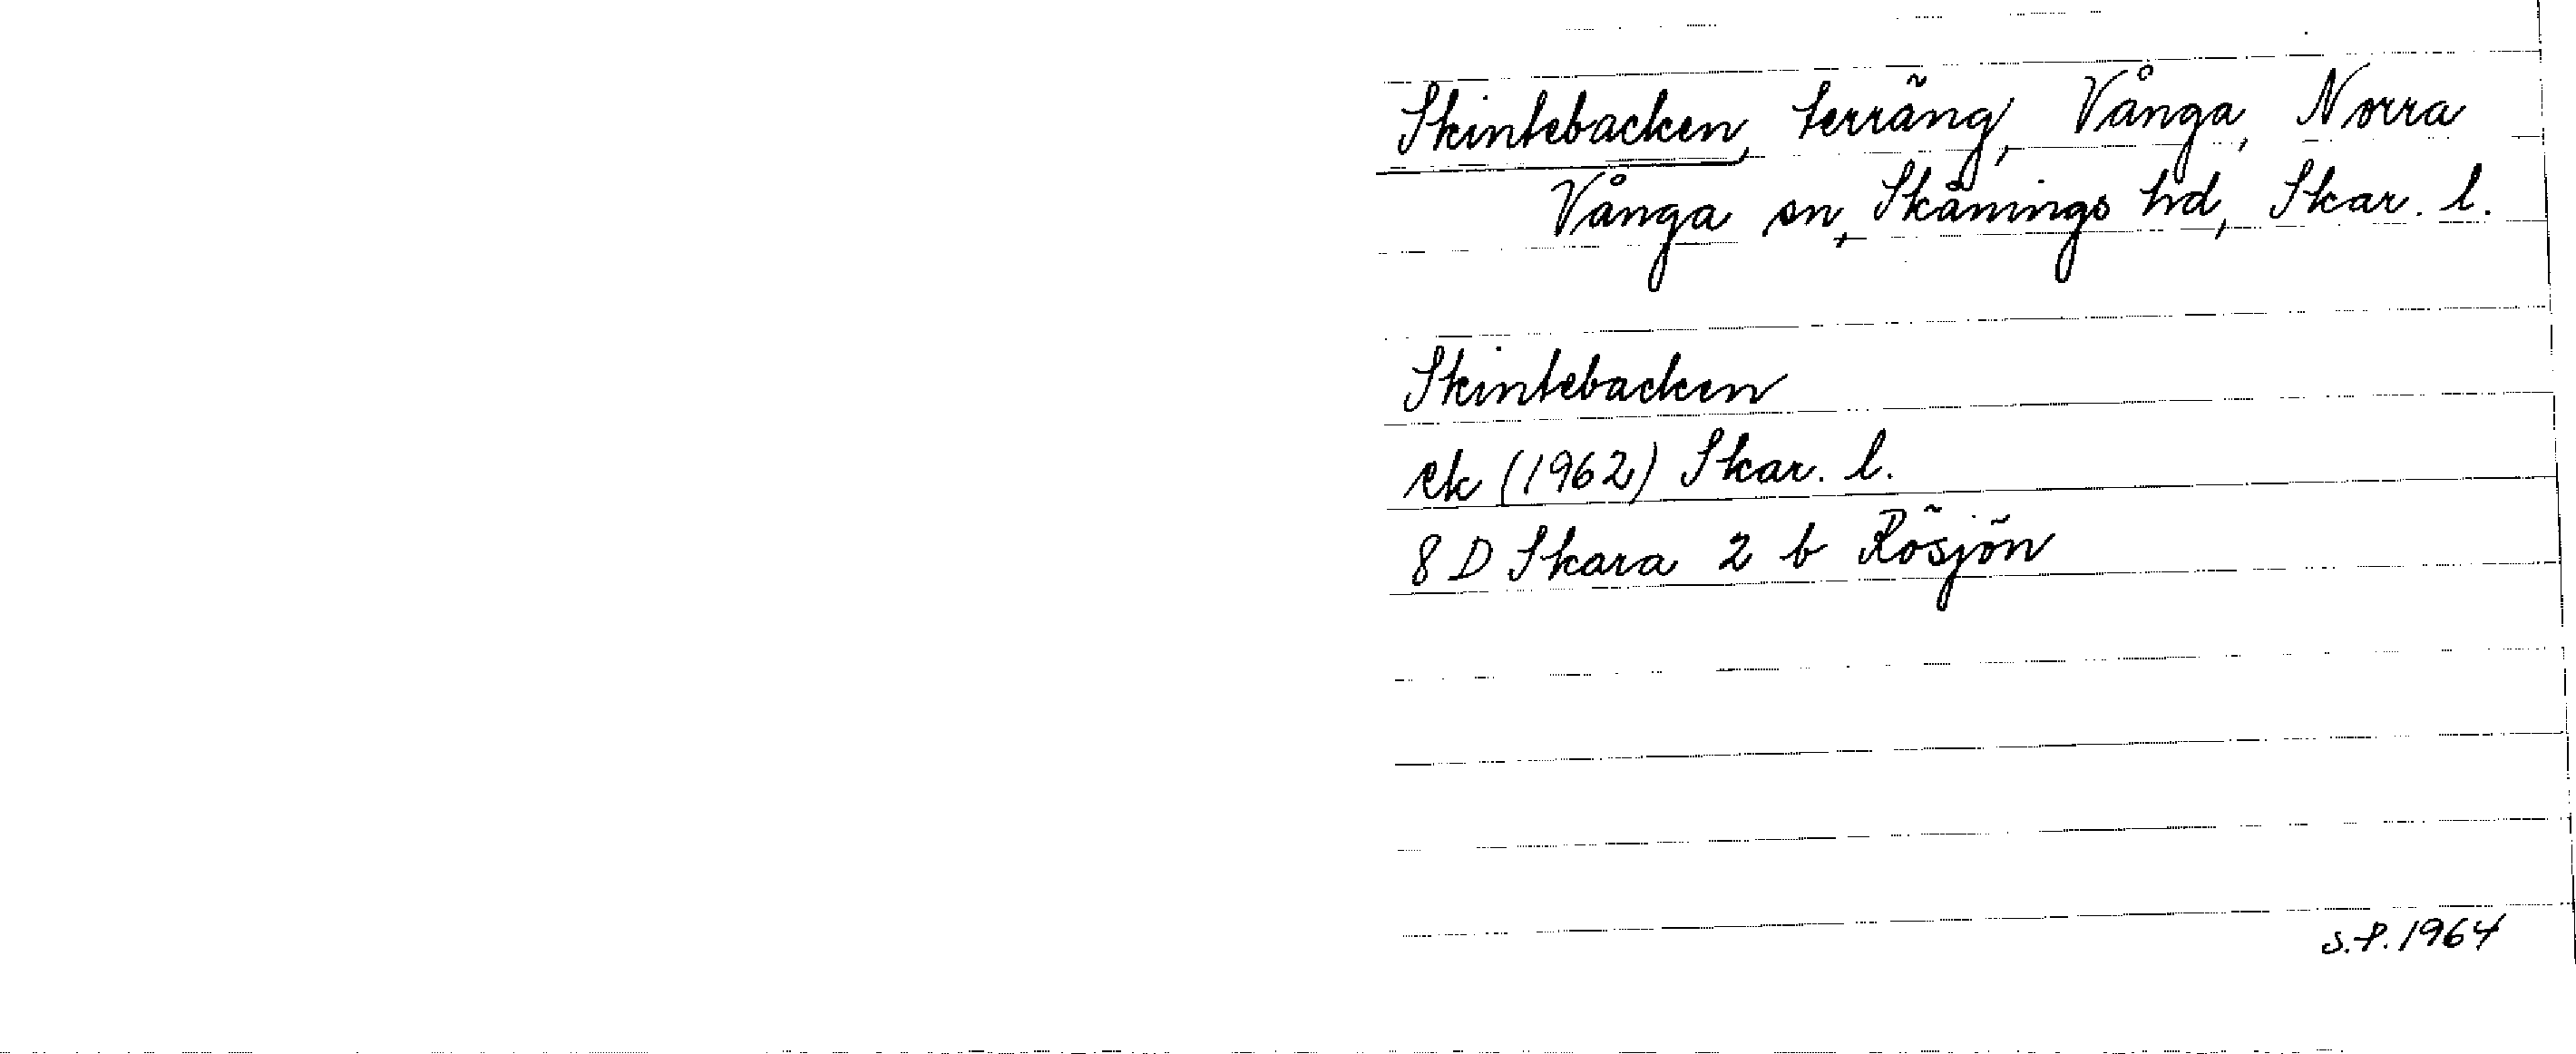 Skintebacken, terräng, Vånga, Norra
Vånga sn, Skånings hd, Skar. l.
Skintebacken
ek (1962) Skar. l.
8 D Skara 2 b Rösjön
S.P. 1964